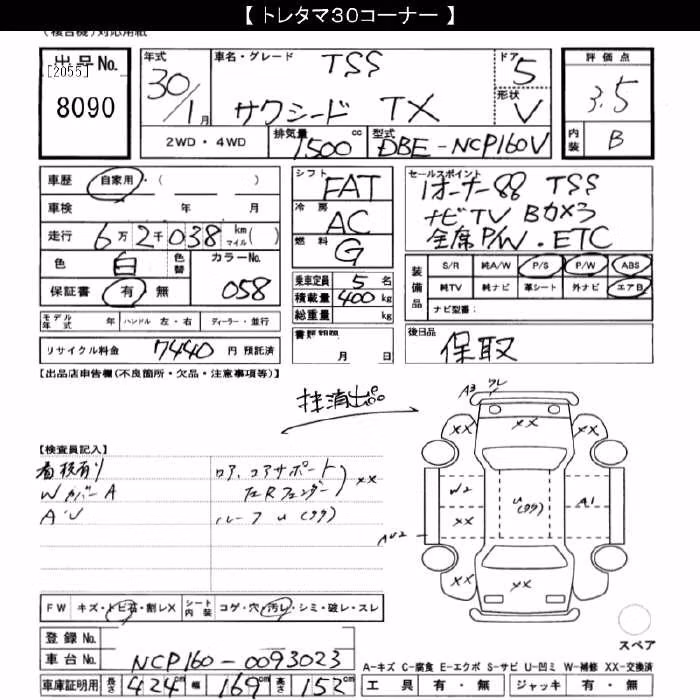 【 トレタマ30コーナー 】
(複合機)対応用紙
出品No.
[2055]
8090
年式
30/1月
車名・グレード
TSS
サクシード TX
ドア
5
形状
V
2WD・4WD
排気量
1500cc
型式
DBE-NCP160V
評価点
3.5
内装
B
車歴 自家用・( )
車検 年 月
走行 6万2千038 km マイル( )
色 白 色替
カラーNo.
058
保証書 有 無
モデル年式 年 ハンドル 左・右 ディーラー・並行
リサイクル料金 7440 円 預託済
シフト
FAT
冷房
AC
燃料
G
乗車定員 5名
積載量 400kg
総重量 kg
書類期限
月 日
セールスポイント
1オーナー 88 TSS
ナビTV Bカメラ
全席P/W. ETC
装備品
S/R 純A/W P/S P/W ABS
純TV 純ナビ 革シート 外ナビ エアB
ナビ型番:
後日品
保取
【出品店申告欄(不良箇所・欠品・注意事項等)】
抹消出品
【検査員記入】
看板有り
Wカバー A
A・U
コアサポート
左Rフェンダー
××
ルーフ u
A3
××
××
××
W2
××
u
A1
××
××
××
FW キズ・トビ石・割レX
シート内装 コゲ・穴・汚レ・シミ・破レ・スレ
登録No.
車台No. NCP160-0093023
車庫証明用 長さ 424cm 幅 169cm 高さ 152cm
スペア
A-キズ C-腐食 E-エクボ S-サビ U-凹ミ W-補修 XX-交換済
工具 有・無 ジャッキ 有・無